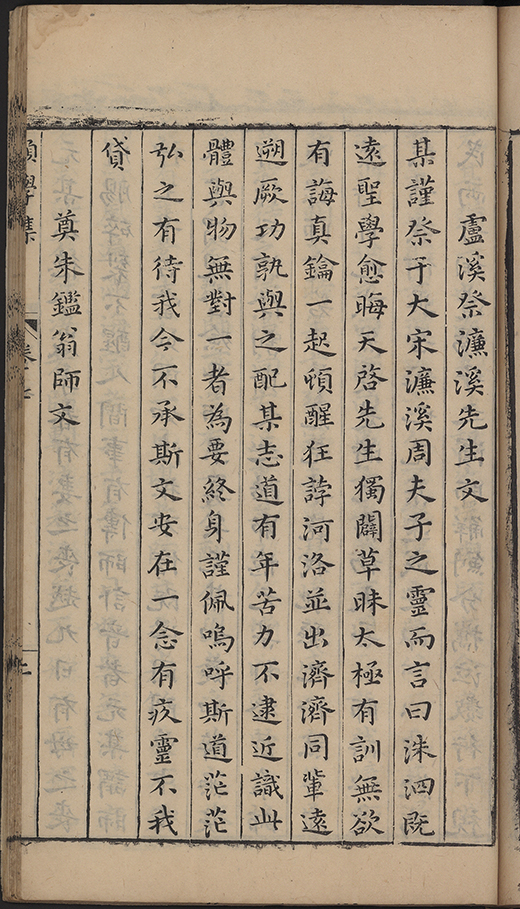 盧溪祭濂溪先生文
某謹祭于大宋濂溪周夫子之靈而言曰洙泗既
遠聖學愈晦天啓先生獨闢草昧太極有訓無欲
有誨真鑰一起頓醒狂誖河洛並出濟濟同軰遠
遡厥功孰與之配某志道有年苦力不逮近識此
體與物無對一者為要終身謹佩嗚呼斯道茫茫
弘之有待我今不承斯文安在一念有疚靈不我
貸
奠朱鑑翁師文
學集
卷七